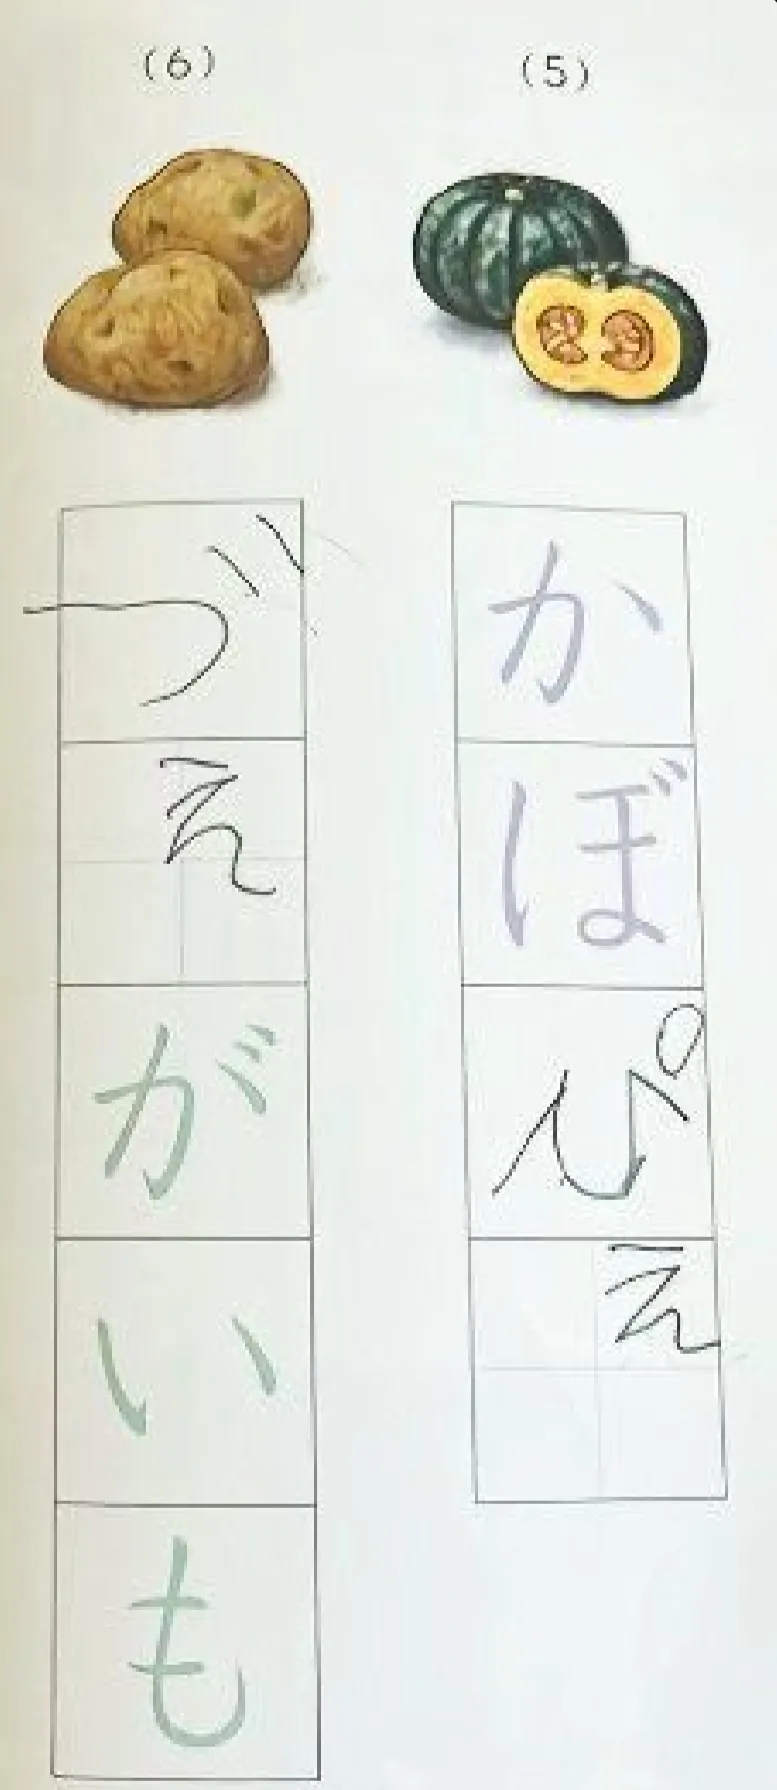 (5)
かぼぴえ
(6)
づえがいも